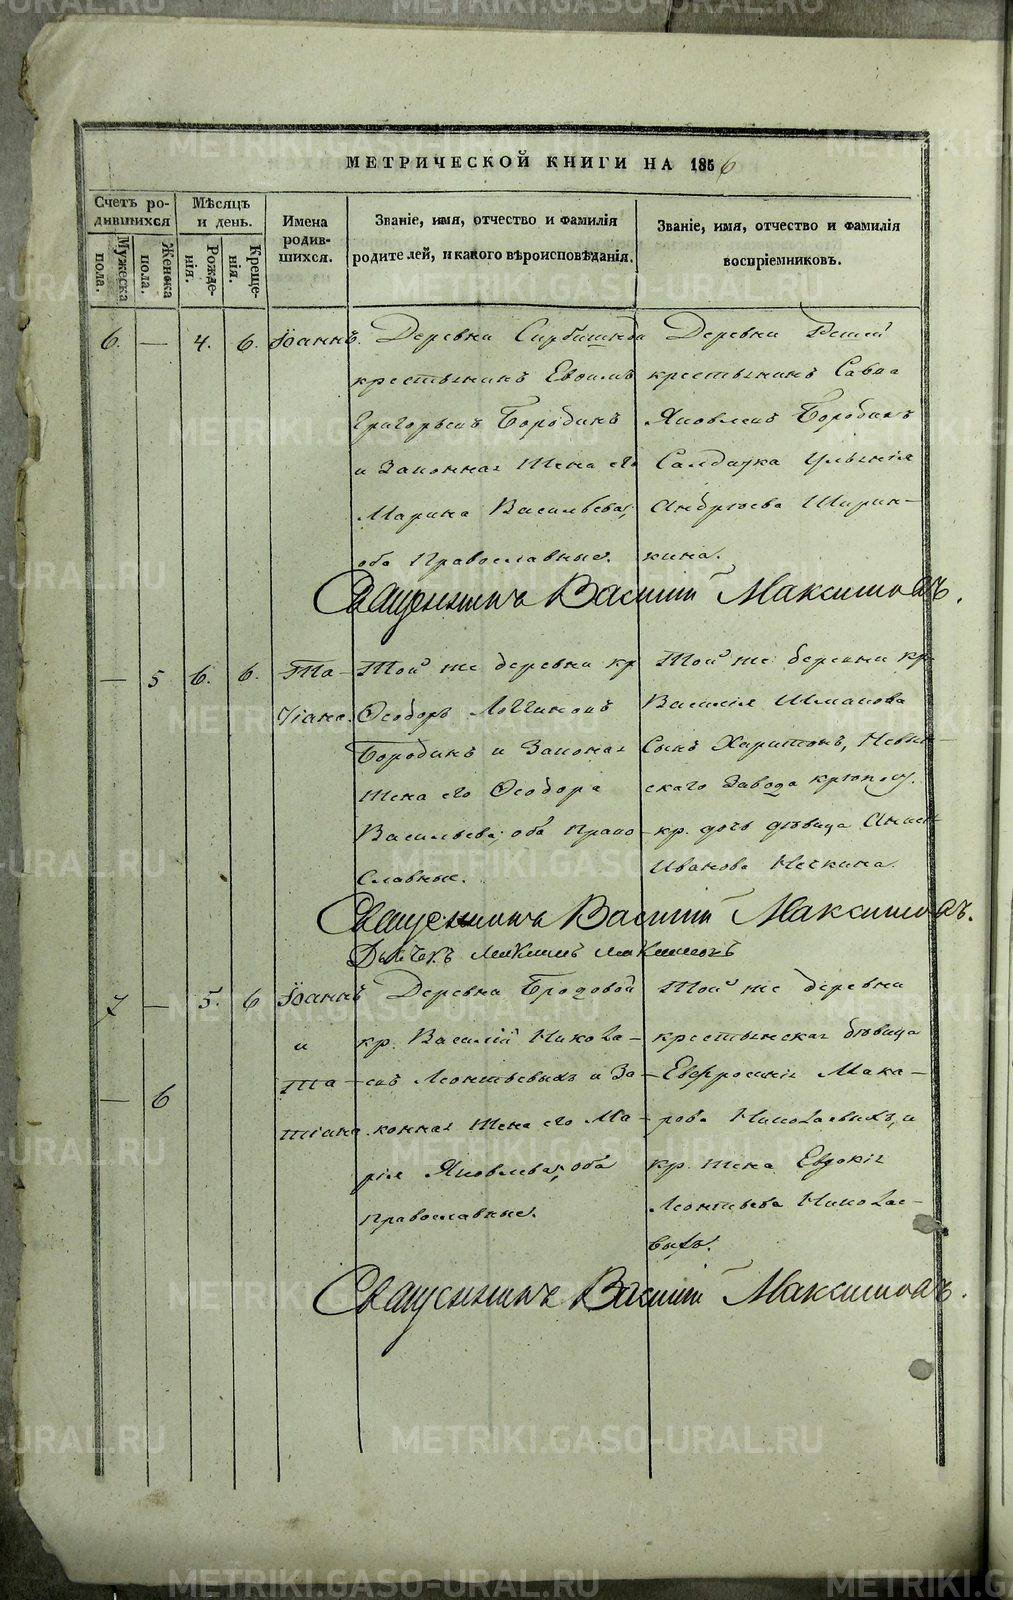 МЕТРИЧЕСКОЙ КНИГИ НА 1856
Счетъ родившихся
Мѣсяцъ и день.
Мужеска пола.
Женска пола.
Рожденія.
Крещенія.
Имена родившихся.
Званіе, имя, отчество и фамилія
родителей, и какого вѣроисповѣданія.
Званіе, имя, отчество и фамилія
воспріемниковъ.
6. — 4. 6. Іоаннъ.
Деревни
крестьянинъ Евѳимъ
Григорьевъ Бородинъ
и законная жена его
Марина Васильева,
оба православные.
Деревни
крестьянинъ Савва
Яковлевъ Бородинъ
Салдатка Ульянія
Андреева Ширин-
кина.
Священникъ Василій Максимовъ.
— 5 6. 6. Та-
тіана.
Той же деревни кр
Ѳеодоръ Логгиновъ
Бородинъ и законная
жена его Ѳеодора
Васильева, оба право-
славные.
Той же деревни кр.
Василія Шманова
Сынъ Харитонъ, Невьян-
скаго завода
кр. дочь дѣвица
Иванова
Священникъ Василій Максимовъ.
Дьячекъ Максимъ Максимовъ
7 — 5. 6 Іоаннъ
и
— 6 Та-
тіана.
Деревни Бродовой
кр. Василій Никола-
евъ Леонтьевыхъ и за-
конная жена его Ма-
рія Яковлева, оба
православные.
Той же деревни
крестьянская дѣвица
Евфросинія Мака-
рова Николаевыхъ, и
кр. жена Евдокія
Леонтьева Николае-
выхъ.
Священникъ Василій Максимовъ.
METRIKI.GASO-URAL.RU